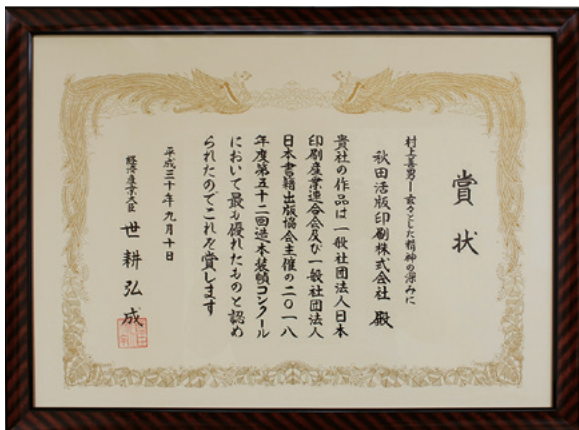 賞状
村上善男―玄々とした精神の深みに
秋田活版印刷株式会社 殿
貴社の作品は一般社団法人日本
印刷産業連合会及び一般社団法人
日本書籍出版協会主催の二〇一八
年度第五十二回造本装幀コンクール
において最も優れたものと認め
られたのでこれを賞します
平成三十年九月十日
経済産業大臣 世耕弘成